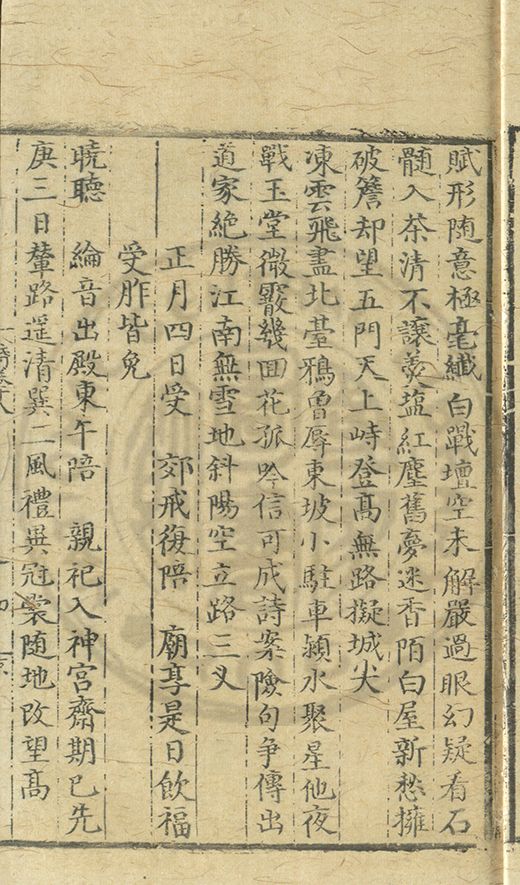 賦形随意極毫纎白戰壇空未解嚴過眼幻疑看石
髓入茶清不讓羙塩紅塵舊夢迷香陌白屋新愁擁
破簷却望五門天上峙登髙無路擬城尖
凍雲飛盡北臺鴉曾辱東坡小駐車潁水聚星他夜
戰玉堂微霰幾囬花孤吟信可成詩案險句争傳出
道家絶勝江南無雪地斜陽空立路三叉
正月四日受 郊戒復陪 廟享是日飲福
受胙皆免
曉聽 綸音出殿東午陪 親祀入神宫齋期巳先
庚三日輦路遥清巽二風禮異冠裳随地改望髙